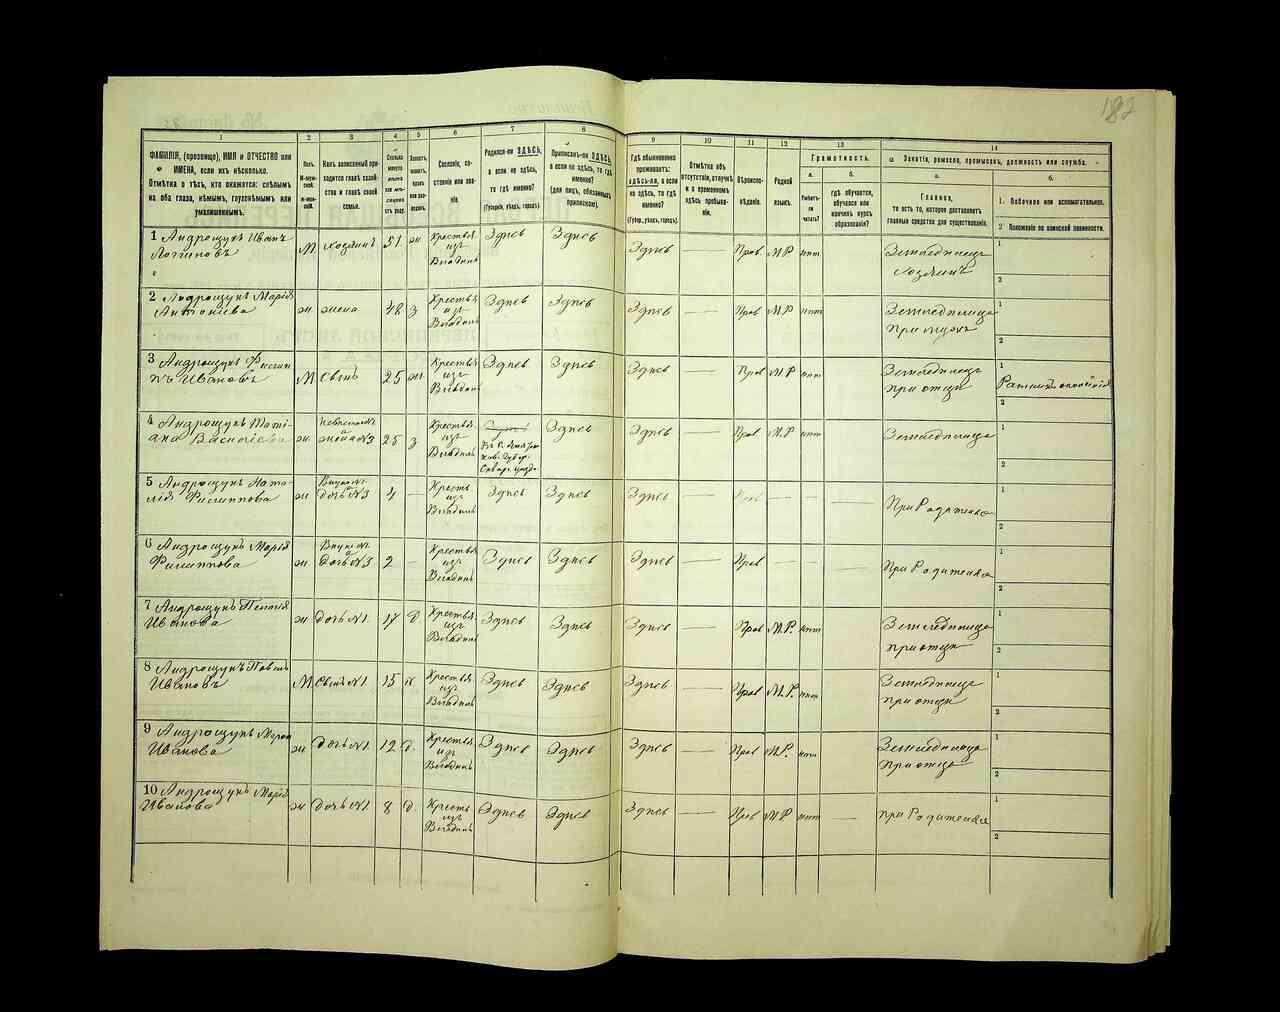 182
1
2
3
4
5
6
7
8
9
10
11
12
13
14
ФАМИЛІЯ, (прозвище), ИМЯ и ОТЧЕСТВО или
ИМЕНА, если ихъ нѣсколько.
Отмѣтка о тѣхъ, кто окажется: слѣпымъ
на оба глаза, нѣмымъ, глухонѣмымъ или
умалишеннымъ.
Полъ.
М-мужской.
Ж-женскій.
Какъ записанный приходится
главѣ хозяйства и главѣ своей
семьи.
Сословіе, состояніе или званіе.
Родился-ли ЗДѢСЬ,
а если не здѣсь,
то гдѣ именно?
(Губернія, уѣздъ, городъ).
Приписанъ-ли ЗДѢСЬ,
а если не здѣсь, то гдѣ
именно?
(для лицъ, обязанныхъ
припиской).
Гдѣ обыкновенно
проживаетъ:
здѣсь-ли, а если
не здѣсь, то гдѣ
именно?
(Губер., уѣздъ, городъ).
Отмѣтка объ
отсутствіи, отлучкѣ
и о временномъ
здѣсь пребываніи.
Вѣроисповѣданіе.
Родной
языкъ.
Грамотность.
а.
Умѣетъ-ли
читать?
б.
гдѣ обучается,
обучался или
кончилъ курсъ
образованія?
Занятіе, ремесло, промыселъ, должность или служба.
а.
Главное,
то есть то, которое доставляетъ
главныя средства для существованія.
б.
1. Побочное или вспомогательное.
2 Положеніе по воинской повинности.
1 Андрощукъ Иванъ
Логиновъ
М хозяинъ 51 ж Крестьян из Владѣл Здѣсь Здѣсь Здѣсь Прав М.Р. нѣт Земледѣлецъ
хозяинъ
2 Андрощукъ Марія
Антоніева
ж жена 48 з Крестьян из Владѣл Здѣсь Здѣсь Здѣсь — Прав М.Р нѣт Земледѣлица
при мужѣ
3 Андрощукъ Филип
пъ Ивановъ
М Сынъ 25 ж Крестьян из Владѣл Здѣсь Здѣсь Здѣсь — Прав М.Р нѣт Земледѣлецъ
при отцѣ
Ратникъ ополченія
4 Андрощукъ Тати
ана Васильева
ж невѣстка №1 жена №3 25 з Крестьян из Владѣл Здѣсь Здѣсь — Прав М.Р нѣт Земледѣлица
5 Андрощукъ Ната
лія Филиппова
ж Внучка №1 Дочь №3 4 — Крестьян из Владѣл Здѣсь Здѣсь Здѣсь — Прав — — — При Родителяхъ
6 Андрощукъ Марія
Филиппова
ж Внучка №1 Дочь №3 2 — Крестьян из Владѣл Здѣсь Здѣсь Здѣсь — Прав — — — При Родителяхъ
7 Андрощукъ Пелагія
Иванова
ж дочь №1 17 д. Крестьян из Владѣл Здѣсь Здѣсь Здѣсь — Прав М.Р. нѣт Земледѣлица
при отцѣ
8 Андрощукъ Павелъ
Ивановъ
М Сынъ №1 15 х. Крестьян из Владѣл Здѣсь Здѣсь Здѣсь — Прав М.Р. нѣт Земледѣлецъ
при отцѣ
9 Андрощукъ
Иванова
ж Дочь №1 12 д. Крестьян из Владѣл Здѣсь Здѣсь Здѣсь — Прав М.Р. нѣт Земледѣлица
При отцѣ
10 Андрощукъ Марія
Иванова
ж дочь №1 8 д. Крестьян из Владѣл Здѣсь Здѣсь Здѣсь — Прав М.Р нѣт — при Родителяхъ